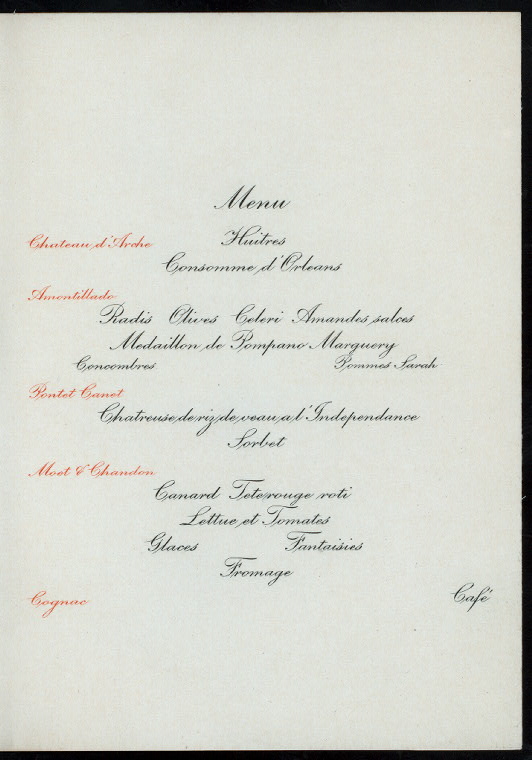 Menu
Chateau d'Arche Huitres
Consomme d'Orleans
Amontillado
Radis Olives Celeri Amandes salces
Medaillon de Pompano Marguery
Concombres Pommes Sarah
Pontet Canet
Chatreuse de riz de veau a l'Independance
Sorbet
Moet & Chandon
Canard Tete rouge roti
Lettuc et Tomates
Glaces Fantaisies
Fromage
Cognac Café